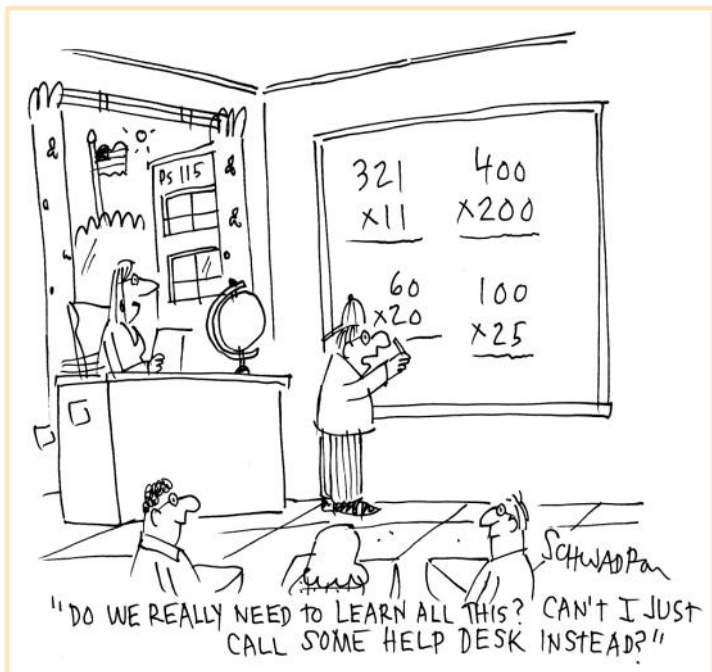 PS 115
321
x11
400
x200
60
x20
100
x25
SCHWADRON
"DO WE REALLY NEED TO LEARN ALL THIS? CAN'T I JUST
CALL SOME HELP DESK INSTEAD?"